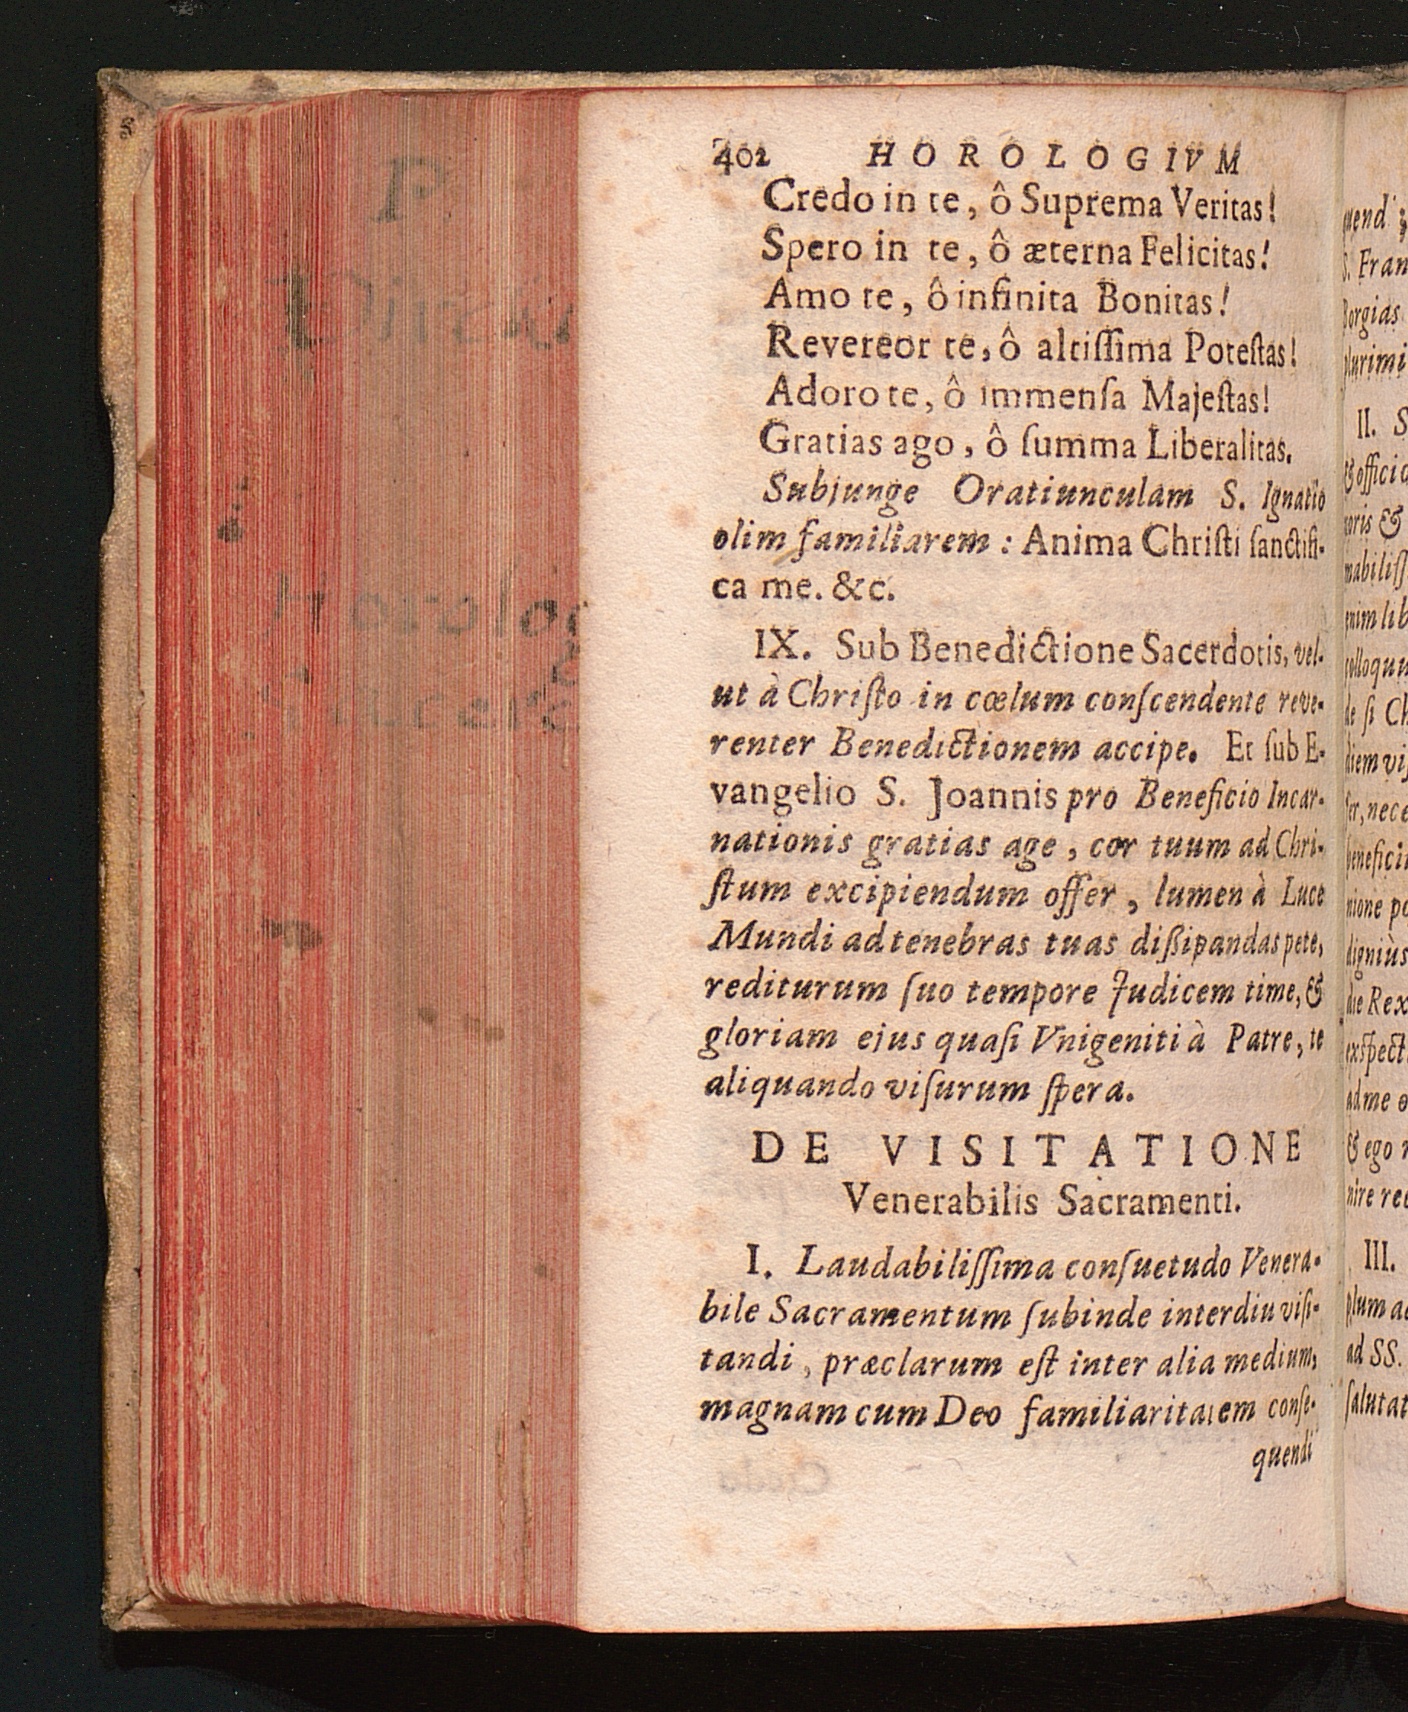 402 HOROLOGIVM
Credo in te, ô Suprema Veritas!
Spero in te, ô æterna Felicitas!
Amo te, ô infinita Bonitas!
Revereor te, ô altiſſima Poteſtas!
Adoro te, ô immenſa Majeſtas!
Gratias ago, ô ſumma Liberalitas.
Subjunge Oratiunculam S. Ignatio
olim familiarem: Anima Chriſti ſanctifi-
ca me. &c.
IX. Sub Benedictione Sacerdotis, vel-
ut à Chriſto in cœlum conſcendente reve-
renter Benedictionem accipe. Et ſub E-
vangelio S. Joannis pro Beneficio Incar-
nationis gratias age, cor tuum ad Chri-
ſtum excipiendum offer, lumen à Luce
Mundi ad tenebras tuas dißipandas pete,
rediturum ſuo tempore Judicem time, &
gloriam ejus quaſi Vnigeniti à Patre, te
aliquando viſurum ſpera.
DE VISITATIONE
Venerabilis Sacramenti.
I. Laudabiliſſima conſuetudo Venera-
bile Sacramentum ſubinde interdiu viſi-
tandi, præclarum eſt inter alia medium,
magnam cum Deo familiaritatem conſe-
quendi
S. Fran
Borgias
II. S
& offici
oris &
enim lib
de ſi Ch
nione po
digniùs
die Rex
exſpect
ad me
& ego
nire re
III.
ad SS.
ſalutat